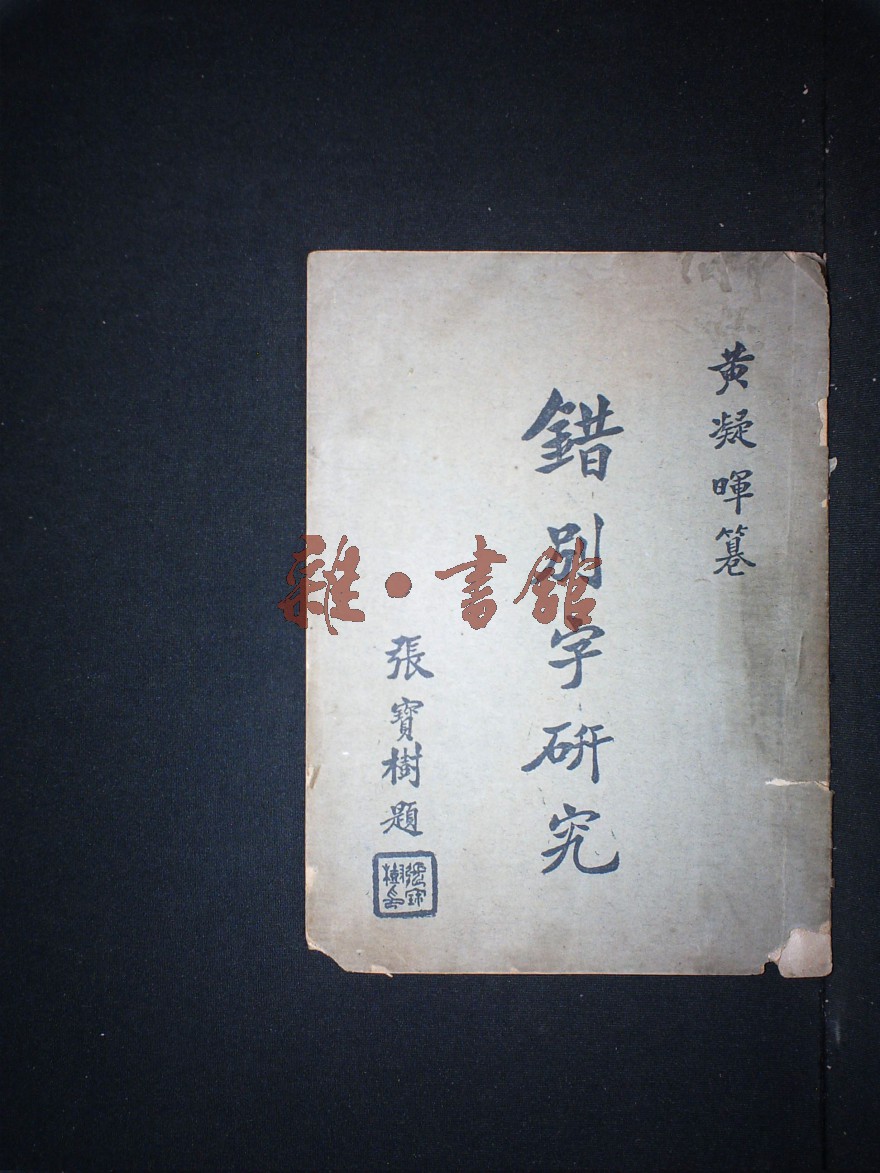 黄凝暉篹
錯別字硏究
張寶樹題
雜·書館